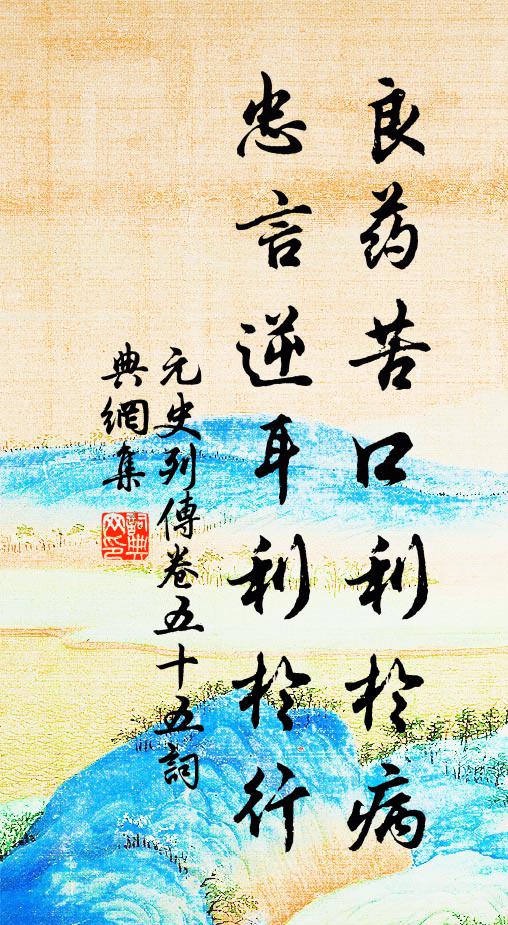 良药苦口利於病
忠言逆耳利於行
元史列傳卷五十五詞
典網集
詞典